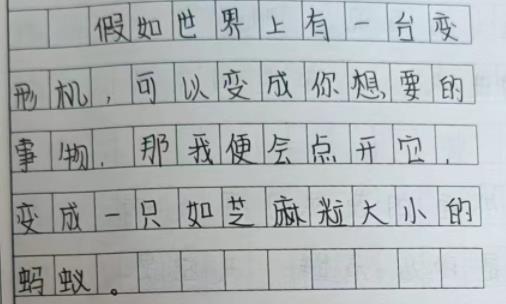 假如世界上有一台变
形机，可以变成你想要的
事物，那我便会点开它，
变成一只如芝麻粒大小的
蚂蚁。